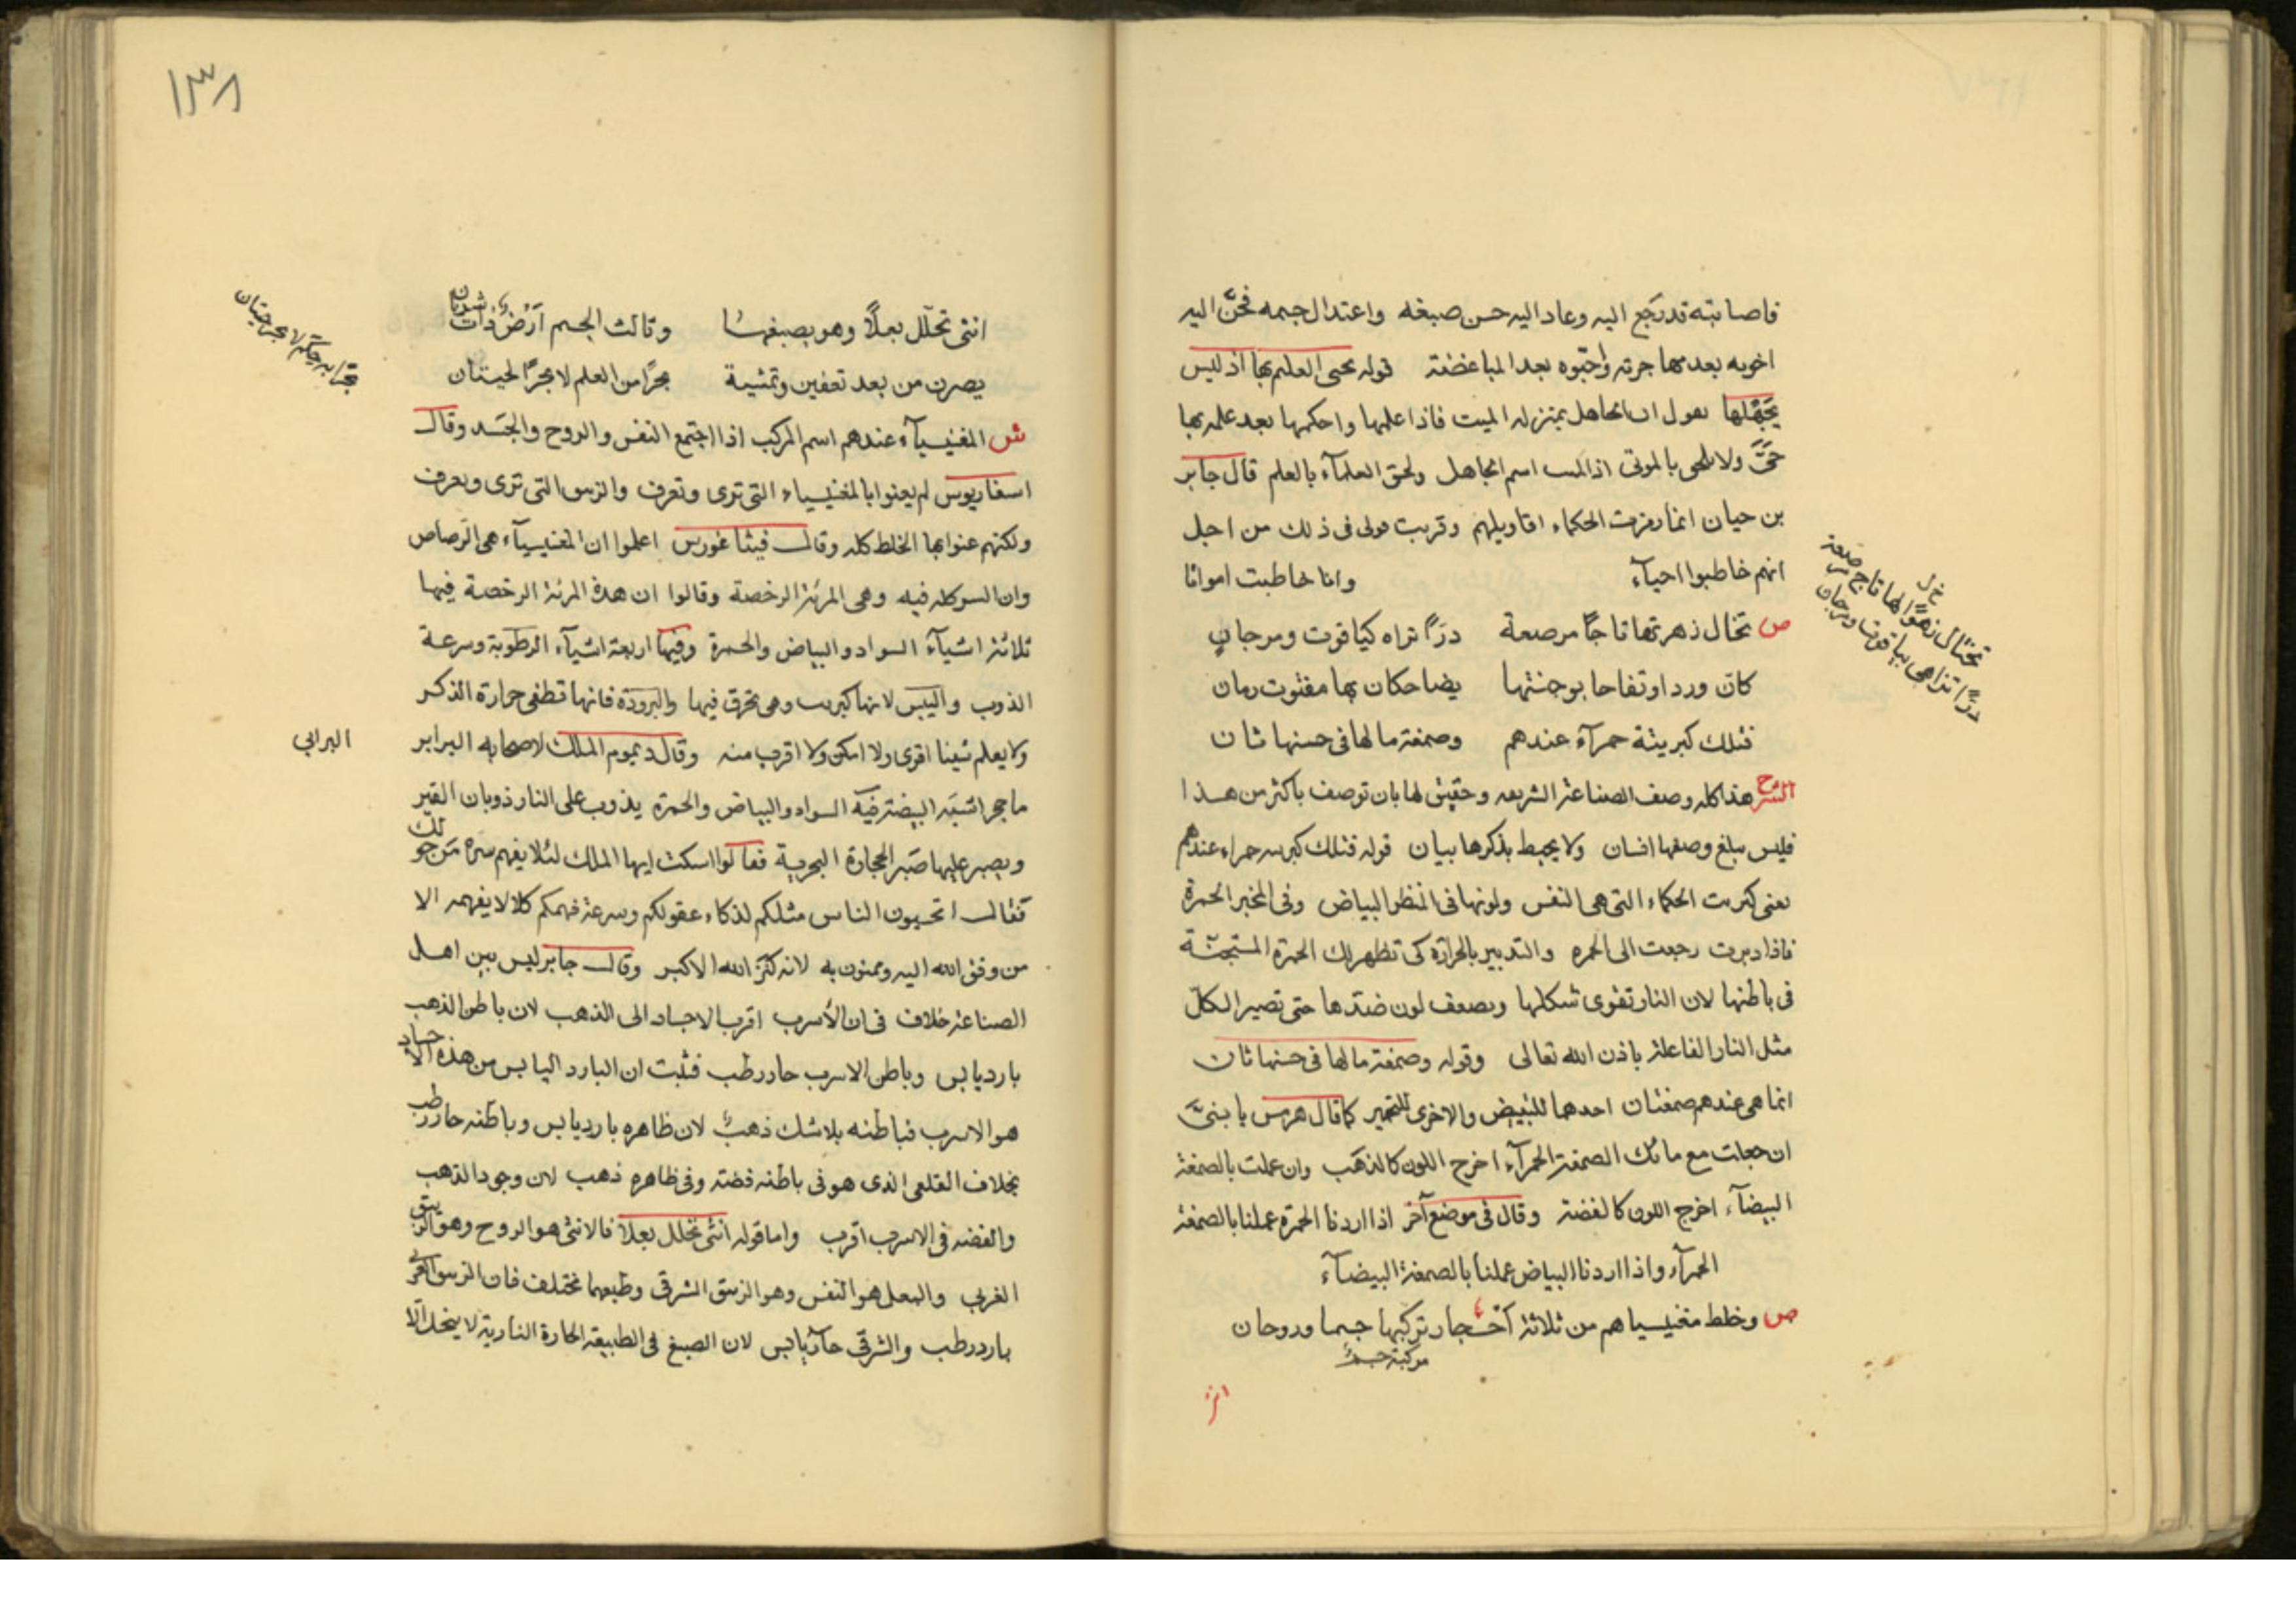 فاصابته قد رجع اليه وعاد اليه حسن صبغه واعتدال جسمه فحنّ اليه
اخوته بعد مهاجرته واحبّوه بعد المباغضة قوله يحيى العليم بها اذ ليس
يجهلها يقول ان الجاهل بمنزله الميت فاذا علمها واحكمها بعد علمه بها
حيَّ ولا يلحى بالموتى اذ الميت اسم الجاهل ولحق العلمآء بالعلم قال جابر
بن حيان انما رمزت الحكماء اقاويلهم وقربت قولى فى ذلك من اجل
انهم خاطبوا احيآء وانا خاطبت امواتا
ص تخال زهرتها تاجًا مرصعة درًا تراه كياقوت ومرجانٍ
كان وردا وتفاحا بوجنتها يضاحكان بها مفتوت رمان
فتلك كبريتة حمرآء عندهم وصمغة ما لها فى حسنها ثان
الشرح هذا كله وصف الصناعة الشريفه وحقيق لها بان توصف باكثر من هذا
فليس يبلغ وصفها انسان ولا يحيط بذكرها بيان قوله فتلك كبريته حمراء عندهم
يعنى كبريت الحكماء التى هى النفس ولونها فى المنظر البياض وفى المخبر الحمرة
فاذا دبرت رجعت الى الحمره والتدبير بالحرارة كى تظهر لك الحمرة المستجنّة
فى باطنها لان النار تقوى شكلها ويضعف لون ضدّها حتى تصير الكلّ
مثل النار الفاعلة باذن الله تعالى وقوله وصمغة ما لها فى حسنها ثان
انما هى عندهم صمغتان احدهما للتبيض والاخرى للتحمير كما قال هرمس يا بنىَّ
ان جعلت مع مائك الصمغة الحمرآء اخرج اللون كالذهب وان عملت بالصمغة
البيضآء اخرج اللون كالفضة وقال فى موضع آخر اذا اردنا الحمرة عملنا بالصمغة
الحمرآء واذا اردنا البياض عملنا بالصمغة البيضآء
ص وخلط مغنيسياهم من ثلاثة أحجار تركبها جسما وروحان
مركبة جسمٌ
خ ل
تختال زهوًا لها تاج مرصعة
درًّا تزاهى بياقوت ومرجان
١٣٨
انثى تحلّل بعلًا وهو يصبغها وثالث الجسم أرضٌ ذات شريان
يصرن من بعد تعفين وتمشية بحرًا من العلم لا بحرًا لحيتان
ش المغنيسيآء عندهم اسم المركب اذا اجتمع النفس والروح والجسد وقال
اسفاريوس لم يعنوا بالمغنيسياء التى ترى وتعرف والزيبق التى ترى وتعرف
ولكنهم عنوا بها الخلط كله وقال فيثاغورس اعلموا ان المغنيسيآء هى الرصاص
وان السر كله فيه وهى المرئة الرخصة وقالوا ان هذه المرئة الرخصة فيها
ثلاثة اشيآء السواد والبياض والحمرة وفيها اربعة اشيآء الرطوبة وسرعة
الذوب واليبس لانها كبريت وهى تحرق فيها والبرودة فانها تطفى حرارة الذكر
ولا يعلم شيئا اقوى ولا امكن ولا اقرب منه وقال ديموم الملك لاصحابه البرابر
البرابي
ما حجر اشبه البيضة فيه السواد والبياض والحمرة يذوب على النار ذوبان القير
ويصبر عليها صبر الحجارة البحرية فقالوا اسكت ايها الملك لئلا يفهم سره من حولك
فقال اتحسبون الناس مثلكم لذكاء عقولكم وسرعة فهمكم كلا لا يفهمه الا
من وفق الله اليه ويمنون به لانه كنز الله الاكبر وقال جابر ليس بين اهل
الصناعة خلاف فى ان الأسرب اقرب الاجساد الى الذهب لان باطن الذهب
بارد يابس وباطن الاسرب حار رطب فثبت ان البارد اليابس من هذه الاجساد
هو الاسرب فباطنه بلا شك ذهبٌ لان ظاهره بارد يابس وباطنه حار رطب
بخلاف القلعى الذى هو فى باطنه فضة وفى ظاهره ذهب لان وجود الذهب
والفضه فى الاسرب اقرب واما قوله انثى تحلل بعلا فالانثى هو الروح وهو الزيبق
الغربى والبعل هو النفس وهو الزيبق الشرقى وطبعهما مختلف فان الزيبق الغربى
بارد رطب والشرقى حار يابس لان الصبغ فى الطبيعة الحارة النارية لا ينحل الّا